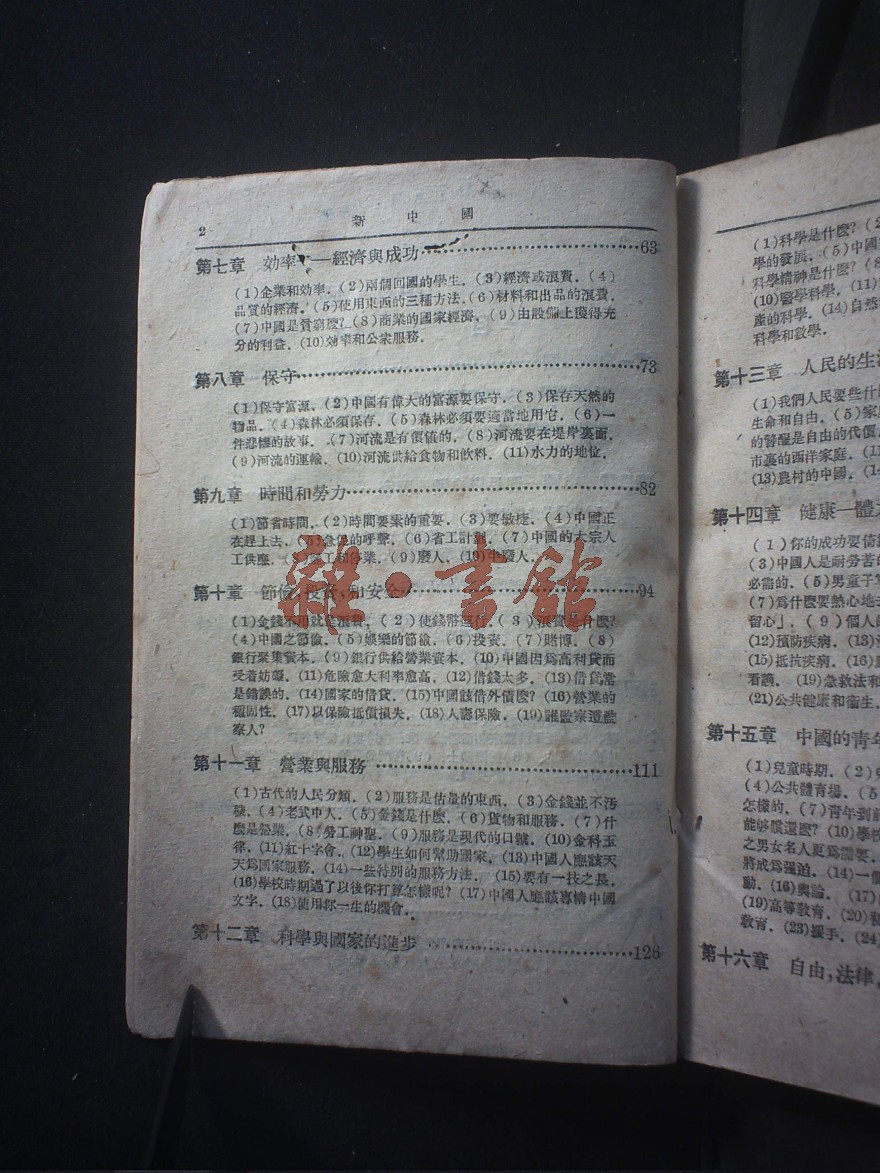 2 新中國
第七章 効率——經濟與成功 63
(1)企業和効率. (2)兩個回國的學生. (3)經濟或浪費. (4)
品質的經濟. (5)使用東西的三種方法. (6)材料和出品的浪費.
(7)中國是貧窮麽? (8)商業的國家經濟. (9)由設備上獲得充
分的利益. (10)効率和公衆服務.
第八章 保守 73
(1)保守富源. (2)中國有偉大的富源要保守. (3)保存天然的
物品. (4)森林必須保存. (5)森林必須要適當地用它. (6)一
件悲慘的故事. (7)河流是有價值的. (8)河流要在堤岸裏面.
(9)河流的運輸. (10)河流供給食物和飲料. (11)水力的地位.
第九章 時間和勞力 82
(1)節省時間. (2)時間要素的重要. (3)要敏捷. (4)中國正
在趕上去. (5)急速的呼聲. (6)省工計劃. (7)中國的大宗人
工供應. (8)勞工和營業. (9)廢人. (10)半廢人.
第十章 節儉,投資,和安全 94
(1)金錢不用就是浪費. (2)使錢幣運行. (3)浪費是什麽?
(4)中國之節儉. (5)娛樂的節儉. (6)投資. (7)賭博. (8)
銀行聚集資本. (9)銀行供給營業資本. (10)中國因爲高利貸而
受着妨礙. (11)危險愈大利率愈高. (12)借錢太多. (13)借爲常
是錯誤的. (14)國家的借貸. (15)中國該借外債麽? (16)營業的
穩固性. (17)以保險抵償損失. (18)人壽保險. (19)誰監察這監
察人?
第十一章 營業與服務 111
(1)古代的人民分類. (2)服務是估量的東西. (3)金錢並不汚
穢. (4)老式中人. (5)金錢是什麽. (6)貨物和服務. (7)什
麽是營業. (8)勞工神聖. (9)服務是現代的口號. (10)金科玉
律. (11)紅十字會. (12)學生如何幫助國家. (13)中國人應該天
天爲國家服務. (14)一些特別的服務方法. (15)要有一技之長.
(16)學校時期過了以後你打算怎樣呢? (17)中國人應該專精中國
文字. (18)使用你一生的機會.
第十二章 科學與國家的進步 126
雜·書館
(1)科學是什麽? (2
學的發展. (5)中國
科學精神是什麽? (8
(10)醫學科學. (11)
產的科學. (14)自然
科學和數學.
第十三章 人民的生
(1)我們人民要些什
生命和自由. (5)家
的警醒是自由的代價.
市裏的西洋家庭. (11
(13)農村的中國. (14
第十四章 健康—體
(1)你的成功要倚
(3)中國人是耐勞苦的
必需的. (5)男童子軍
(7)爲什麽要熱心地去
留心」. (9)個人的
(12)預防疾病. (13)
(15)抵抗疾病. (16)
看護. (19)急救法和
(21)公共健康和衞生.
第十五章 中國的青年
(1)兒童時期. (2)
(4)公共體育場. (5
怎樣的. (7)青年到
能够償還麽? (10)學校
之男女名人更爲需要.
將成爲强迫. (14)一個
動. (16)輿論. (17)
(19)高等教育. (20)
教育. (23)援手. (24)
第十六章 自由,法律,